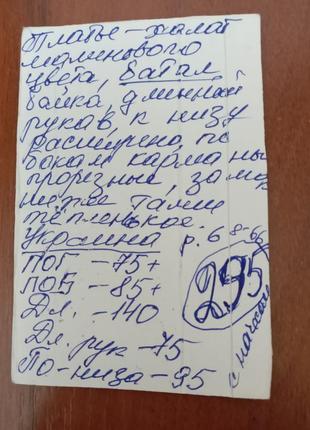 Платье-халат
малинового
цвета, батал,
байка, длинный
рукав, к низу
расширено, по
бокам карманы
прорезные, замок
ниже талии
тёпленькое.
Украина р. 68-66
ПОГ - 75+
ПОБ - 85+
Дл. - 140
Дл. рук - 75
По-низа - 95
295
с начёсом